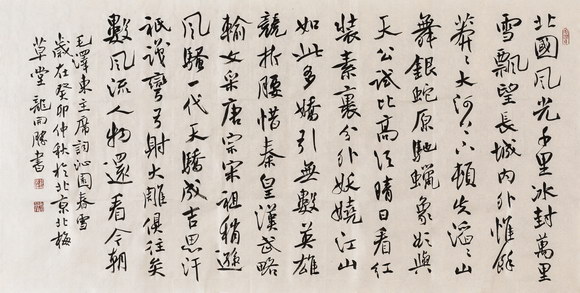 北國風光千里冰封萬里
雪飄望長城內外惟餘
莽々大河上下頓失滔々山
舞銀蛇原馳蠟象欲與
天公試比高須晴日看紅
裝素裹分外妖嬈江山
如此多嬌引無數英雄
競折腰惜秦皇漢武略
輸文采唐宗宋祖稍遜
風騷一代天驕成吉思汗
祇識彎弓射大雕俱往矣
數風流人物還看今朝
毛澤東主席詞沁園春雪
歲在癸卯仲秋於北京北梅
草堂龍向勝書